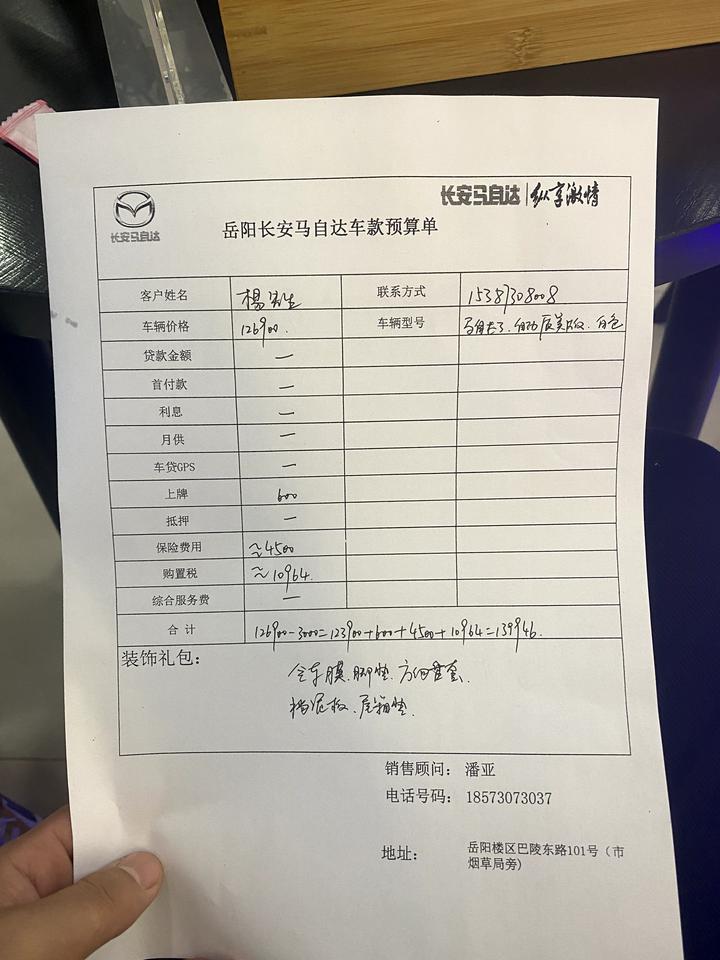 长安马自达
长安马自达|纵享激情
岳阳长安马自达车款预算单
客户姓名 楊先生 联系方式 15387308008
车辆价格 126900. 车辆型号 马自达3.自动 质美版.白色
贷款金额 —
首付款 —
利息 —
月供 —
车贷GPS —
上牌 600
抵押 —
保险费用 ≈4500
购置税 ≈10964.
综合服务费 —
合计 126900-3000=123900+600+4500+10964=139946.
装饰礼包: 全车膜.脚垫.方向盘套.
档泥板.尾箱垫.
销售顾问: 潘亚
电话号码: 18573073037
地址: 岳阳楼区巴陵东路101号(市
烟草局旁)